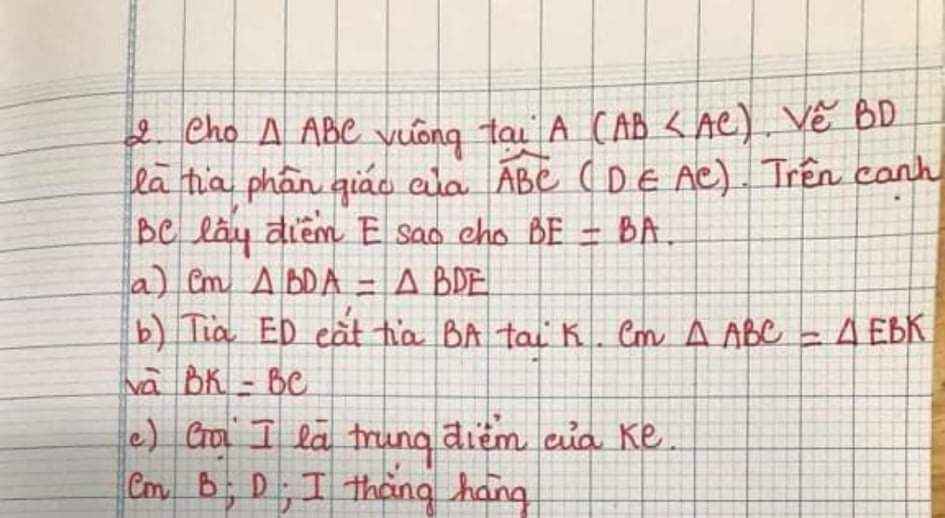 2. Cho Δ ABC vuông tại A (AB < AC). Vẽ BD
là tia phân giác của ABC (D ∈ AC). Trên cạnh
BC lấy điểm E sao cho BE = BA.
a) Cm Δ BDA = Δ BDE
b) Tia ED cắt tia BA tại K. Cm Δ ABC = Δ EBK
và BK = BC
c) Gọi I là trung điểm của KC.
Cm B; D; I thẳng hàng